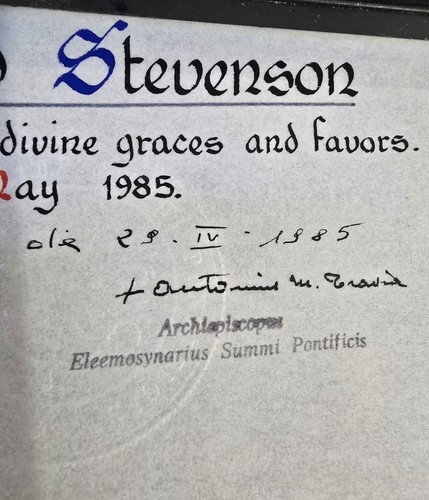 Stevenson
divine graces and favors.
May 1985.
die 29. IV - 1985
+ Antonius M. Travia
Archiepiscopus
Eleemosynarius Summi Pontificis